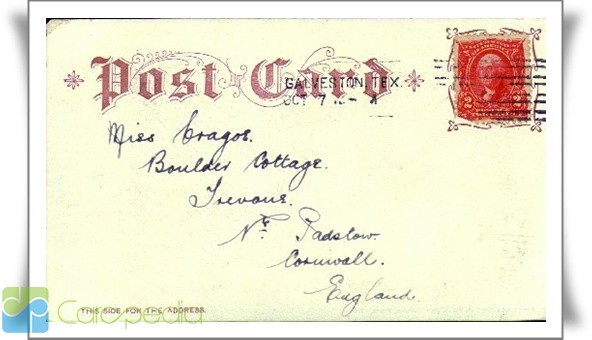 Post Card
GALVESTON, TEX.
OCT 7
2 2
Miss Cragos.
Boulder Cottage.
Trevone.
Nr. Padstow.
Cornwall.
England.
THIS SIDE FOR THE ADDRESS.
dp Caropedia